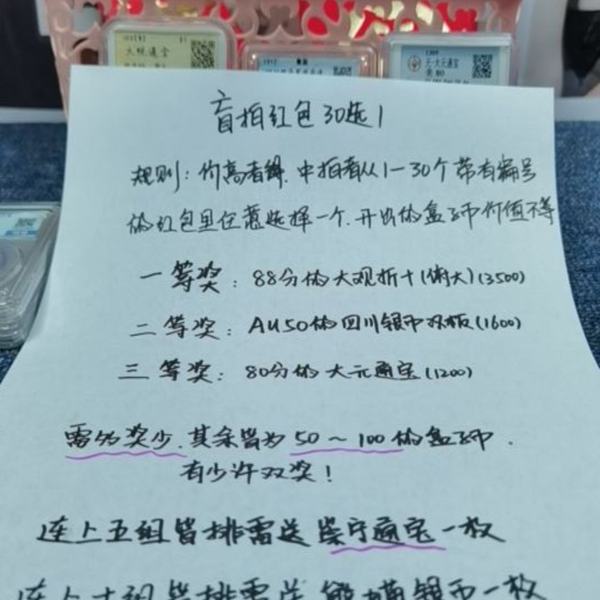 大观通宝
盲拍红包30选1
规则：价高者得.中拍者从1-30个带有编号
的红包里任意选择一个.开出的盒子币价值不等
一等奖：88分的大观折十(俏大)(3500)
二等奖：AU50的四川银币双板(1600)
三等奖：80分的大元通宝(1200)
雷多奖少.其余皆为50~100的盒子币.
有少许双奖！
连上五组皆排雷送崇宁通宝一枚
连上十组皆排雷送熊猫银币一枚